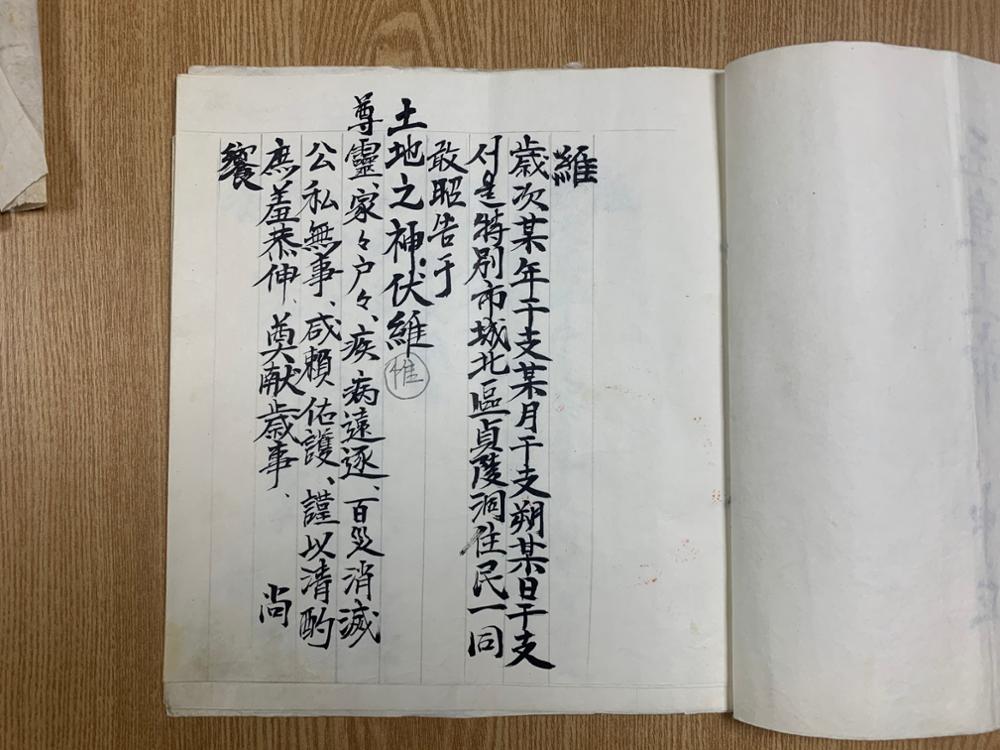 維
歲次某年干支某月干支朔某日干支
서울特別市城北區貞陵洞住民一同
敢昭告于
土地之神、伏維
惟
尊靈、家々户々、疾病遠逐、百災消滅
公私無事、咸賴佑護、謹以清酌
庶羞恭伸、奠献歲事、尚
饗